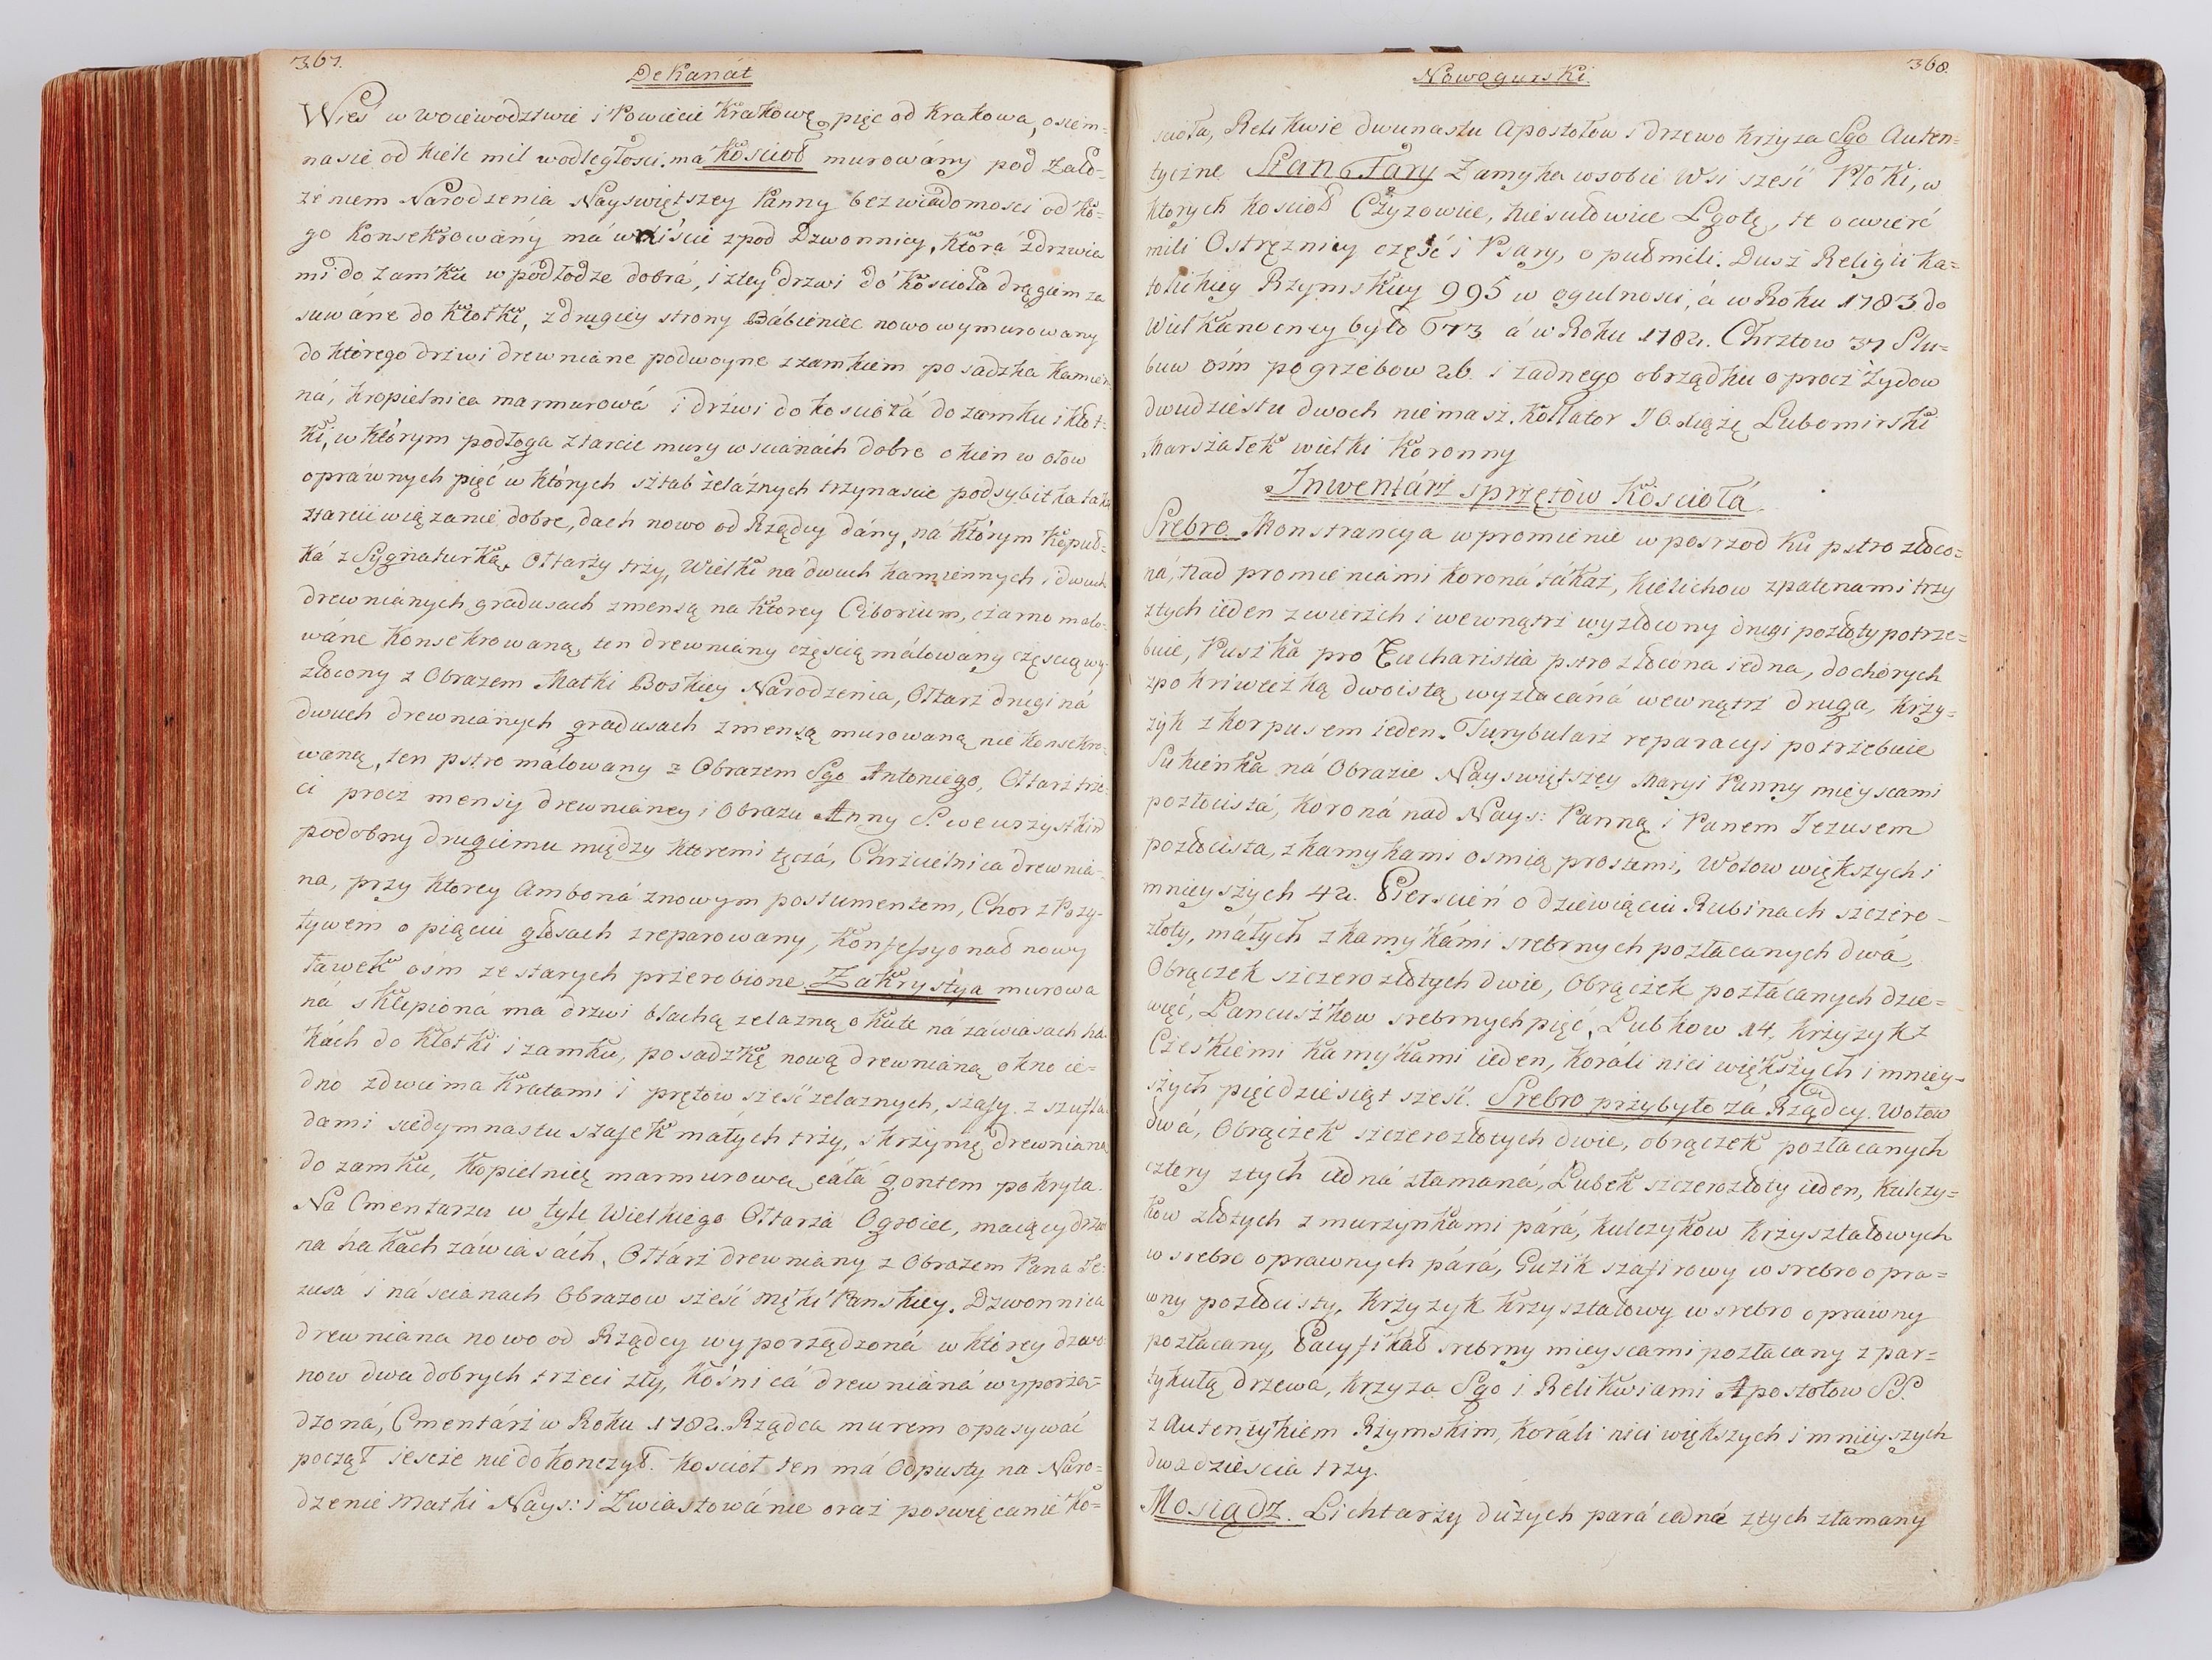 367.
Dekanát
Wieś w wociewodztwie i Powiecie Krakowę. pięc od Krakowa, osiem=
nasie od Kielc mil wodległosci. má Kościoł murowány pod Zało=
żeniem Narodzenia Nayswiętszey Panny bez wiadomosci od Ko=
go Konsekrowány má weiście zpod Dzwonnicy, Ktora zdrzwia
mi do Zamku w podłodze dobrá, i z tey drzwi do Kościoła drągiem za
suwáne do Kłotki, z drugiey strony Bábieniec nowo wymurowany
do ktorego drzwi drewniane podwoyne z zamkiem posadzka kamien
ná, kropielnica marmurowá i drzwi do kościołá do zamku i kłot=
Ki, w którym podłoga z tarcic mury w scianách dobre okien w ołow
opráwnych pięć w Ktorych sztab żeláznych trzynascie podsybitka taka
z tarcic wiązanie dobre, dach nowo od Rządcy dány, ná Ktorym Kopuł=
ká z Sygnaturką. Ołtarzy trzy, Wielki ná dwuch kamiennych i dwuch
drewniánych gradusach z mensą na Ktorey Ciborium, czarno malo=
wáne Konsekrowaną, ten drewniány częścią málowány częscią wy=
złocony z Obrazem Matki Boskiey Národzenia, Ołtarz drugi ná
dwuch drewniánych gradusach z mensą murowaną nie konsekro=
waną, ten pstro málowany z Obrazem Sgo Antoniego, Ołtarz trze=
ci procz mensy drewniáney i Obrazu Anny S. we wszystkim
podobny drugiemu między ktoremi tęczá, Chrzcielnica drewnia=
na, przy Ktorey Amboná z nowym postumentem, Chor z Pozy=
tywem o piąciu głosach zreparowany, Konfessyonał nowy
ławek ośm ze starych przerobione. Zakrystya murowa
ná sklepioná ma drzwi blachą zelazną okute ná záwiasach ha=
kách do Kłotki i zamku, posadzkę nową drewnianą okno ie=
dno z dwiema Kratami i prętow sześć zelaznych, szafy z szufla=
dami siedymnastu szafek małych trzy, skrzynię drewniana
do zamku, Kropielnię marmurową cáłá gontem pokryta.
Na Cmentarzu w tyle Wielkiego Ołtarza Ogroiec, maiący drzwi
na hakach záwiasách, Ołtárz drewniany z Obrazem Pana Je=
zusá i ná scianach Obrazow sześć Męki Panskiey. Dzwonnica
drewniana nowo od Rządcy wyporządzoná w ktorey dzwo=
now dwa dobrych trzeci zły, Kośnicá drewnianá wyporzą=
dzoná, Cmentárz w Roku 1782. Rządca murem opasywać
począł ieszcze nie dokonczył. Kościoł ten má Odpusty na Naro=
dzenie Matki Nays: i Zwiastowánie oraz poswięcanie Ko=
368.
Nowogurski.
scioła, Relikwie dwunastu Apostołow i drzewo Krzyza Sgo Auten=
tyczne Stan Fary Zamyka w sobie Wsi sześć Płoki, w
ktorych kościoł Czyzowice, Niesułowice Lgotę, te o cwierć
mili Ostręznicy część i Psary, o puł mili. Dusz Religii Ka=
tolickiey Rzymskiey 995 w ogulnosci, á w Roku 1783 do
Wielkanocney było 673 á w Roku 1782. Chrztow 37 Slu=
buw ośm pogrzebow 26. i zadnego obrządku oprocz Zydow
dwudziestu dwoch niemasz. Kollator JO. Xiążę Lubomirski
Marszałek wielki Koronny
Inwentárz sprzętów Kościołá.
Srebro. Monstrancya w promienie w posrzod Ku pstro złoco=
ná, Nad promieniámi Koroná tákaż, Kielichow z patenami trzy
z tych ieden z wierzch i wewnątrz wyzłocony drugi pozłoty potrze=
buie, Puszka pro Eucharistia pstro złocona iedna, do chorych
z pokriweczką dwoistą wyzłacáná wewnątrz druga, krzy=
żyk z korpusem ieden. Turybularz reparacyi potrzebuie
Sukienka ná Obrazie Nayswiętszey Maryi Panny mieyscami
pozłocistá, koroná nad Nays: Panną i Panem Jezusem
pozłocista, z kamykami osmią prostemi, Wotow większych i
mnieyszych 42. Pierscień o dziewiąciu Rubinach szczero=
złoty, máłych z kamykámi srebrnych pozłacanych dwá,
Obrączek szczerozłotych dwie, Obrączek pozłácanych dzie=
więć, Lancuszkow srebrnych pięć, Lubkow 14, krzyzyk z
Czeskiemi kamykami ieden, Koráli nici większych i mniey=
szych pięcdziesiąt sześć. Srebro przybyło zá Rządcy. Wotow
dwá, Obrączek szczerozłotych dwie, obrączek pozłacanych
cztery z tych iedná złamaná, Lubek szczerozłoty ieden, kulczy=
kow złotych z murzynkami párá, kulczykow krzyształowych
w srebro oprawnych párá, Guzik szafirowy w srebro opra=
wny pozłocisty, krzyzyk krzyształowy w srebro oprawny
pozłacany, Pacyfikał srebrny mieyscami pozłacany z par=
tykułą drzewa, Krzyza Sgo i Relikwiami Apostołow SS.
z Autentykiem Rzymskim, Koráli nici większych i mnieyszych
dwadzieścia trzy.
Mosiądz. Lichtarzy dużych pará iedná z tych złamany